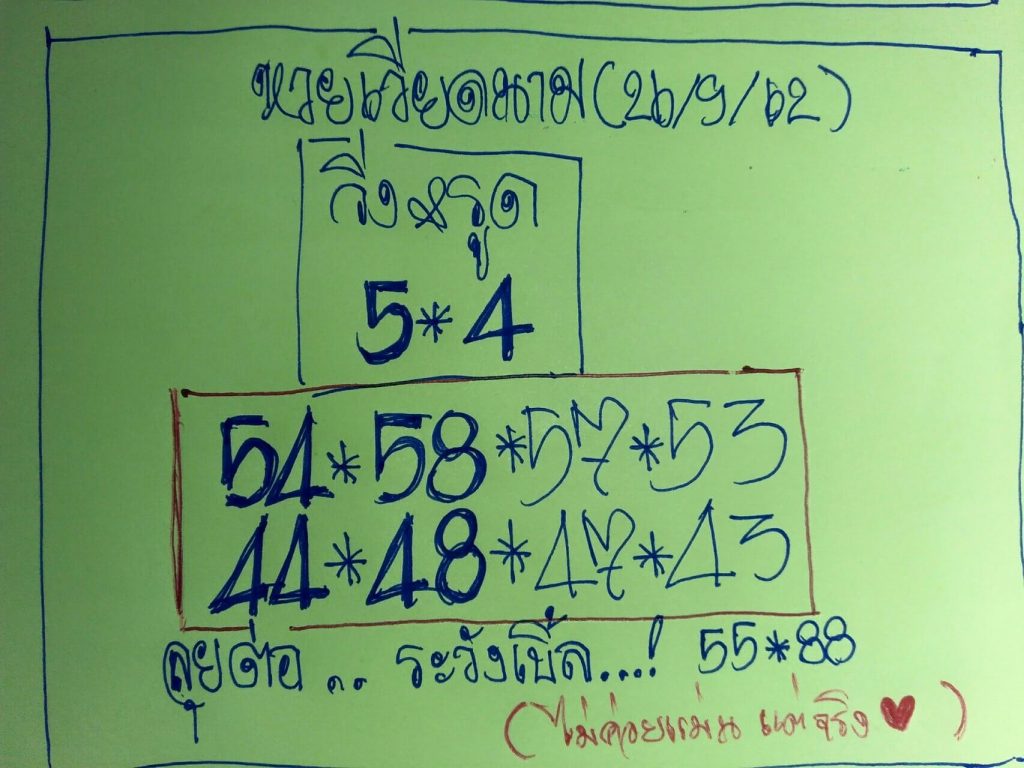 หวยเวียดนาม (26/9/62)
วิ่ง&รูด
5*4
54*58*57*53
44*48*47*43
ลุยต่อ .. ระวังเบิ้ล....! 55*88
(ไม่ค่อยแม่น แต่จริง ♥)